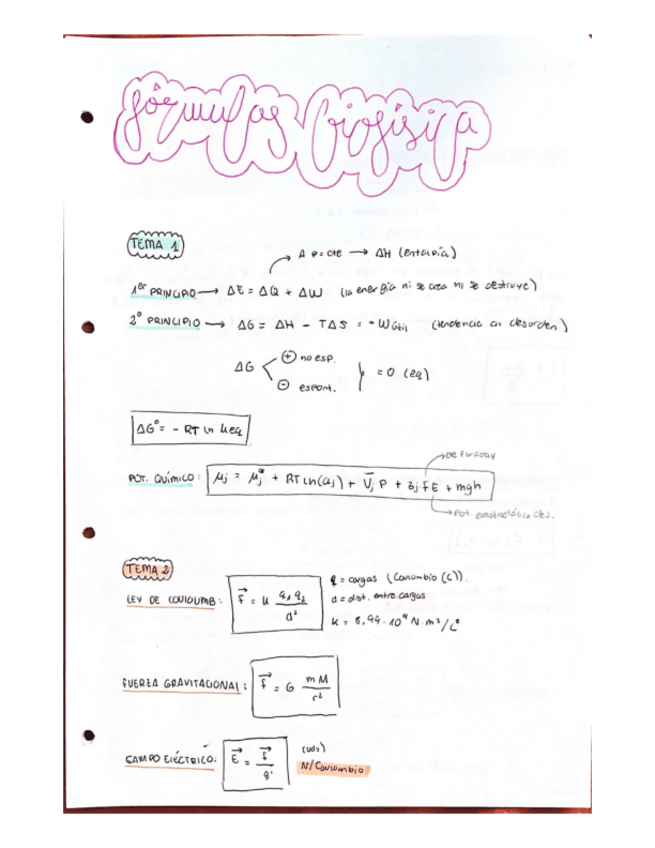 fórmulas biofísica
TEMA 1
A p=cte → ΔH (entalpía)
1er PRINCIPIO → ΔE = ΔQ + ΔW (la energía ni se crea ni se destruye)
2º PRINCIPIO → ΔG = ΔH - TΔS = -Wútil (tendencia al desorden)
ΔG
⊕ no esp.
⊖ espont.
= 0 (eq)
ΔGº = - RT ln Keq
cte faraday
POT. QUÍMICO: μj = μj* + RT ln(aj) + V̄j P + zj F E + mgh
pot. electrostático
TEMA 2
q = cargas (Coulombio (C)).
LEY DE COULOMB: F⃗ = K q1 q2 / d²
d = dist. entre cargas
K = 8,99·10⁹ N·m²/C²
FUERZA GRAVITACIONAL: F⃗ = G mM / r²
CAMPO ELÉCTRICO: E⃗ = F⃗ / q'
(uds)
N/Coulombio